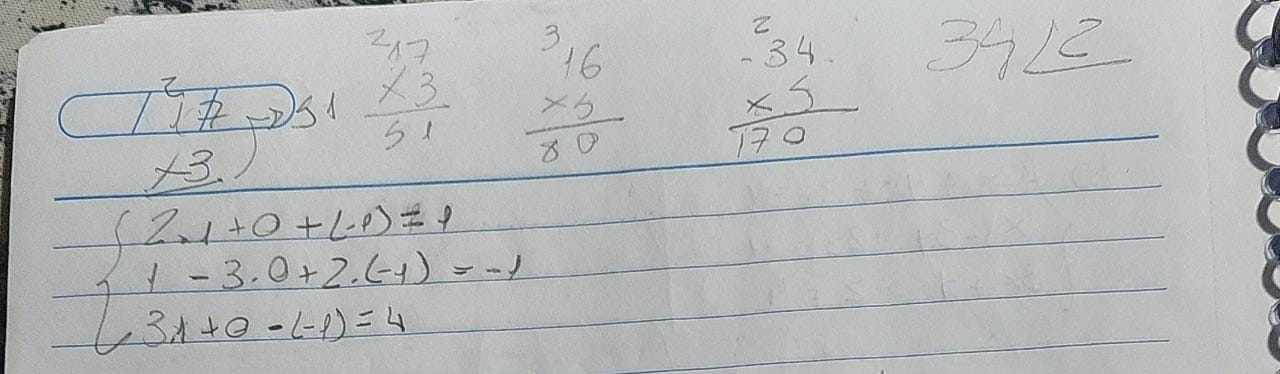 2 17 → 51
×3
2 17
×3
51
3 16
×5
80
2 34
×5
170
34 2
2.1 + 0 + (-1) = 1
1 - 3.0 + 2.(-1) = -1
3.1 + 0 - (-1) = 4